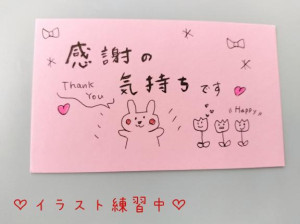 感謝の
気持ちです
Thank
You
Happy
♡イラスト練習中♡